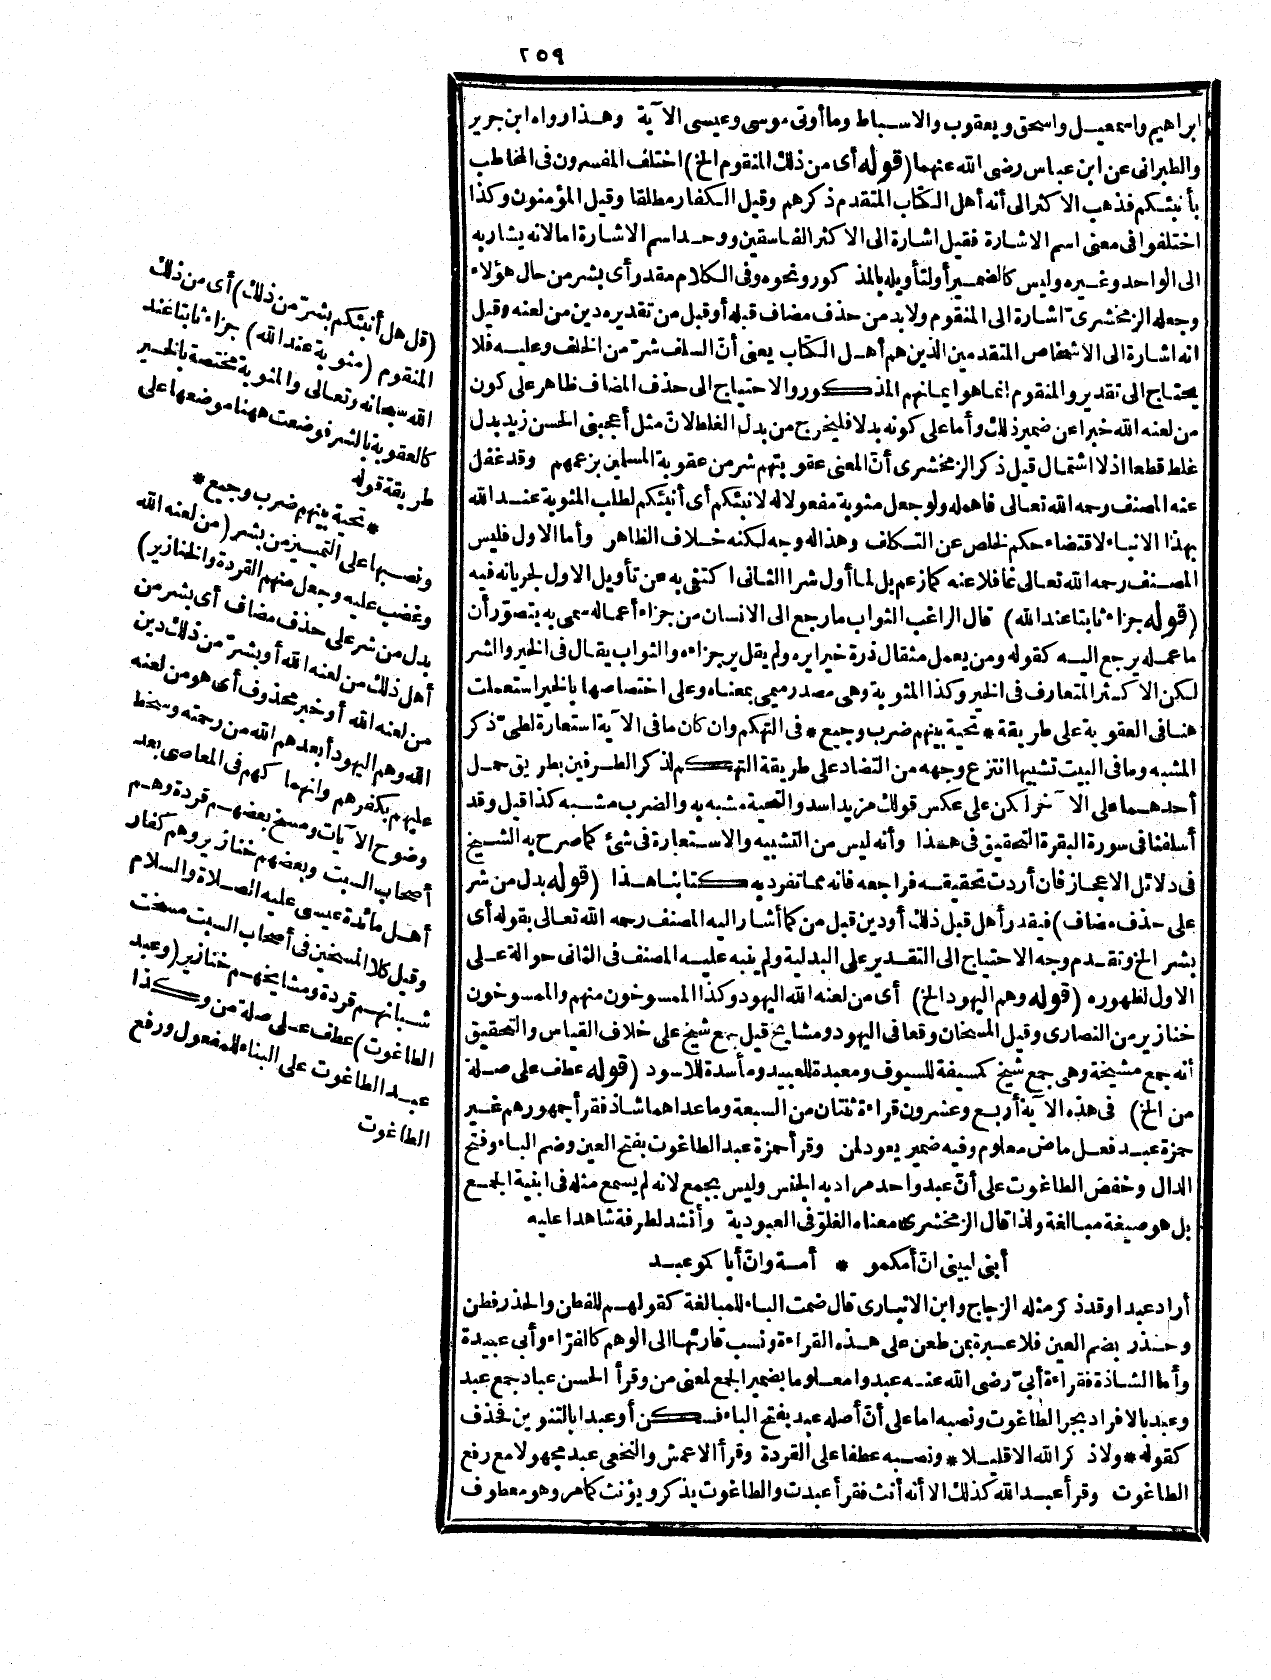 ٢٥٩
ابراهيم واسمعيل واسحق ويعقوب والاسباط وما أوتى موسى وعيسى الآية وهذا رواه ابن جرير
والطبرانى عن ابن عباس رضى الله عنهما (قوله أى من ذلك المنقوم الخ) اختلف المفسرون فى المخاطب
بأنبئكم فذهب الاكثر الى أنه أهل الكتاب المتقدم ذكرهم وقيل الكفار مطلقا وقيل المؤمنون وكذا
اختلفوا فى معنى اسم الاشارة فقيل اشارة الى الاكثر الفاسقين ووحد اسم الاشارة اما لانه يشار به
الى الواحد وغيره وليس كالضمير أو لتأويله بالمذكور ونحوه وفى الكلام مقدر أى بشر من حال هؤلاء
وجعله الزمخشرىّ اشارة الى المنقوم ولا بد من حذف مضاف قبله أو قبل من تقديره دين من لعنه وقيل
انه اشارة الى الاشخاص المتقدمين الذين هم أهل الكتاب يعنى أنّ السلف شرّ من الخلف وعليه فلا
يحتاج الى تقدير والمنقوم انما هو ايمانهم المذكور والاحتياج الى حذف المضاف ظاهر على كون
من لعنه الله خبرا عن ضمير ذلك وأما على كونه بدلا فليخرج من بدل الغلط لانّ مثل أعجبنى الحسن زيد بدل
غلط قطعا اذ لا اشتمال قيل ذكر الزمخشرى أنّ المعنى عقوبتهم شر من عقوبة المسلمين بزعمهم وقد غفل
عنه المصنف رحمه الله تعالى فاهمله ولو جعل مثوبة مفعولا له لانبئكم أى أنبئكم لطلب المثوبة عند الله
بهذا الانباء لاقتضاء حكم لخلص عن التكاف وهذا له وجه لكنه خلاف الظاهر وأما الاول فليس
المصنف رحمه الله تعالى غافلا عنه كما زعم بل لما أول شرا الثانى اكتفى به عن تأويل الاول لجريانه فيه
(قوله جزاء ثابتا عند الله) قال الراغب الثواب ما رجع الى الانسان من جزاء أعماله سمى به بتصوّر أن
ما عمله يرجع اليه كقوله ومن يعمل مثقال ذرة خيرا يره ولم يقل ير جزاءه والثواب يقال فى الخير والشر
لكن الاكثر المتعارف فى الخير وكذا المثوبة وهى مصدر ميمى بمعناه وعلى اختصاصها بالخير استعملت
هنا فى العقوبة على طريقة * تحية بينهم ضرب وجيع * فى التهكم وان كان ما فى الآية استعارة لطىّ ذكر
المشبه وما فى البيت تشبيها انتزع وجهه من التضاد على طريقة التهكم لذكر الطرفين بطريق حمل
أحدهما على الآخر لكن على عكس قولك هو زيد اسد والتحية مشبه به والضرب مشبه كذا قيل وقد
أسلفنا فى سورة البقرة التحقيق فى هذا وأنه ليس من التشبيه والاستعارة فى شئ كما صرح به الشيخ
فى دلائل الاعجاز فان أردت تحقيقه فراجعه فانه مما تفرد به كتابنا هذا (قوله بدل من شر
على حذف مضاف) فيقدر أهل قبل ذلك أو دين قبل من كما أشار اليه المصنف رحمه الله تعالى بقوله أى
بشر الخ وتقدم وجه الاحتياج الى التقدير على البدلية ولم ينبه عليه المصنف فى الثانى حوالة على
الاول لظهوره (قوله وهم اليهود الخ) أى من لعنه الله اليهود وكذا الممسوخون منهم والممسوخون
خنازير من النصارى وقيل المسخان وقعا فى اليهود ومشايخ قيل جمع شيخ على خلاف القياس والتحقيق
أنه جمع مشيخة وهى جمع شيخ كسيفة للسيوف ومعبدة للعبيد ومأسدة للاسود (قوله عطف على صلة
من الخ) فى هذه الآية أربع وعشرون قراءة ثنتان من السبعة وما عداهما شاذ فقرأ جمهورهم غير
حمزة عبد فعل ماض معلوم وفيه ضمير يعود لمن وقرأ حمزة عبد الطاغوت بفتح العين وضم الباء وفتح
الدال وخفض الطاغوت على أنّ عبد واحد مراد به الجنس وليس بجمع لانه لم يسمع مثله فى ابنية الجمع
بل هو صيغة مبالغة ولذا قال الزمخشرى معناه الغلوّ فى العبودية وأنشد لطرفة شاهدا عليه
أبنى لبينى انّ أمكمو * أمة وانّ أباكمو عبد
أراد عبدا وقد ذكر مثله الزجاج وابن الانبارى قال ضمت الباء للمبالغة كقولهم للفطن والحذر فطن
وحذر بضم العين فلا عبرة بمن طعن على هذه القراءة ونسب قارئها الى الوهم كالفرّاء وأبى عبيدة
وأما الشاذة فقراءة أبىّ رضى الله عنه عبدوا معلوما بضمير الجمع لمعنى من وقرأ الحسن عباد جمع عبد
وعبد بالافراد بجر الطاغوت ونصبه اما على أنّ أصله عبد بفتح الباء فسكن أو عبدا بالتنوين فحذف
كقوله * ولا ذاكر الله الا قليلا * ونصبه عطفا على القردة وقرأ الاعمش والنخعى عبد مجهولا مع رفع
الطاغوت وقرأ عبد الله كذلك الا أنه أنث فقرأ عبدت والطاغوت يذكر ويؤنث كما مر وهو معطوف
(قل هل أنبئكم بشرّ من ذلك) أى من ذلك
المنقوم (مثوبة عند الله) جزاء ثابتا عند
الله سبحانه وتعالى والمثوبة مختصة بالخير
كالعقوبة بالشر فوضعت ههنا موضعها على
طريقة قوله
* تحية بينهم ضرب وجيع *
ونصبها على التمييز من بشر (من لعنه الله
وغضب عليه وجعل منهم القردة والخنازير)
بدل من شر على حذف مضاف أى بشر من
أهل ذلك من لعنه الله أو بشرّ من ذلك دين
من لعنه الله أو خبر محذوف أى هو من لعنه
الله وهم اليهود أبعدهم الله من رحمته وسخط
عليهم بكفرهم وانهما كهم فى المعاصى بعد
وضوح الآيات ومسخ بعضهم قردة وهم
أصحاب السبت وبعضهم خنازير وهم كفار
أهل مائدة عيسى عليه الصلاة والسلام
وقيل كلا المسخين فى أصحاب السبت مسخت
شبانهم قردة ومشايخهم خنازير (وعبد
الطاغوت) عطف على صلة من وكذا
عبد الطاغوت على البناء للمفعول ورفع
الطاغوت